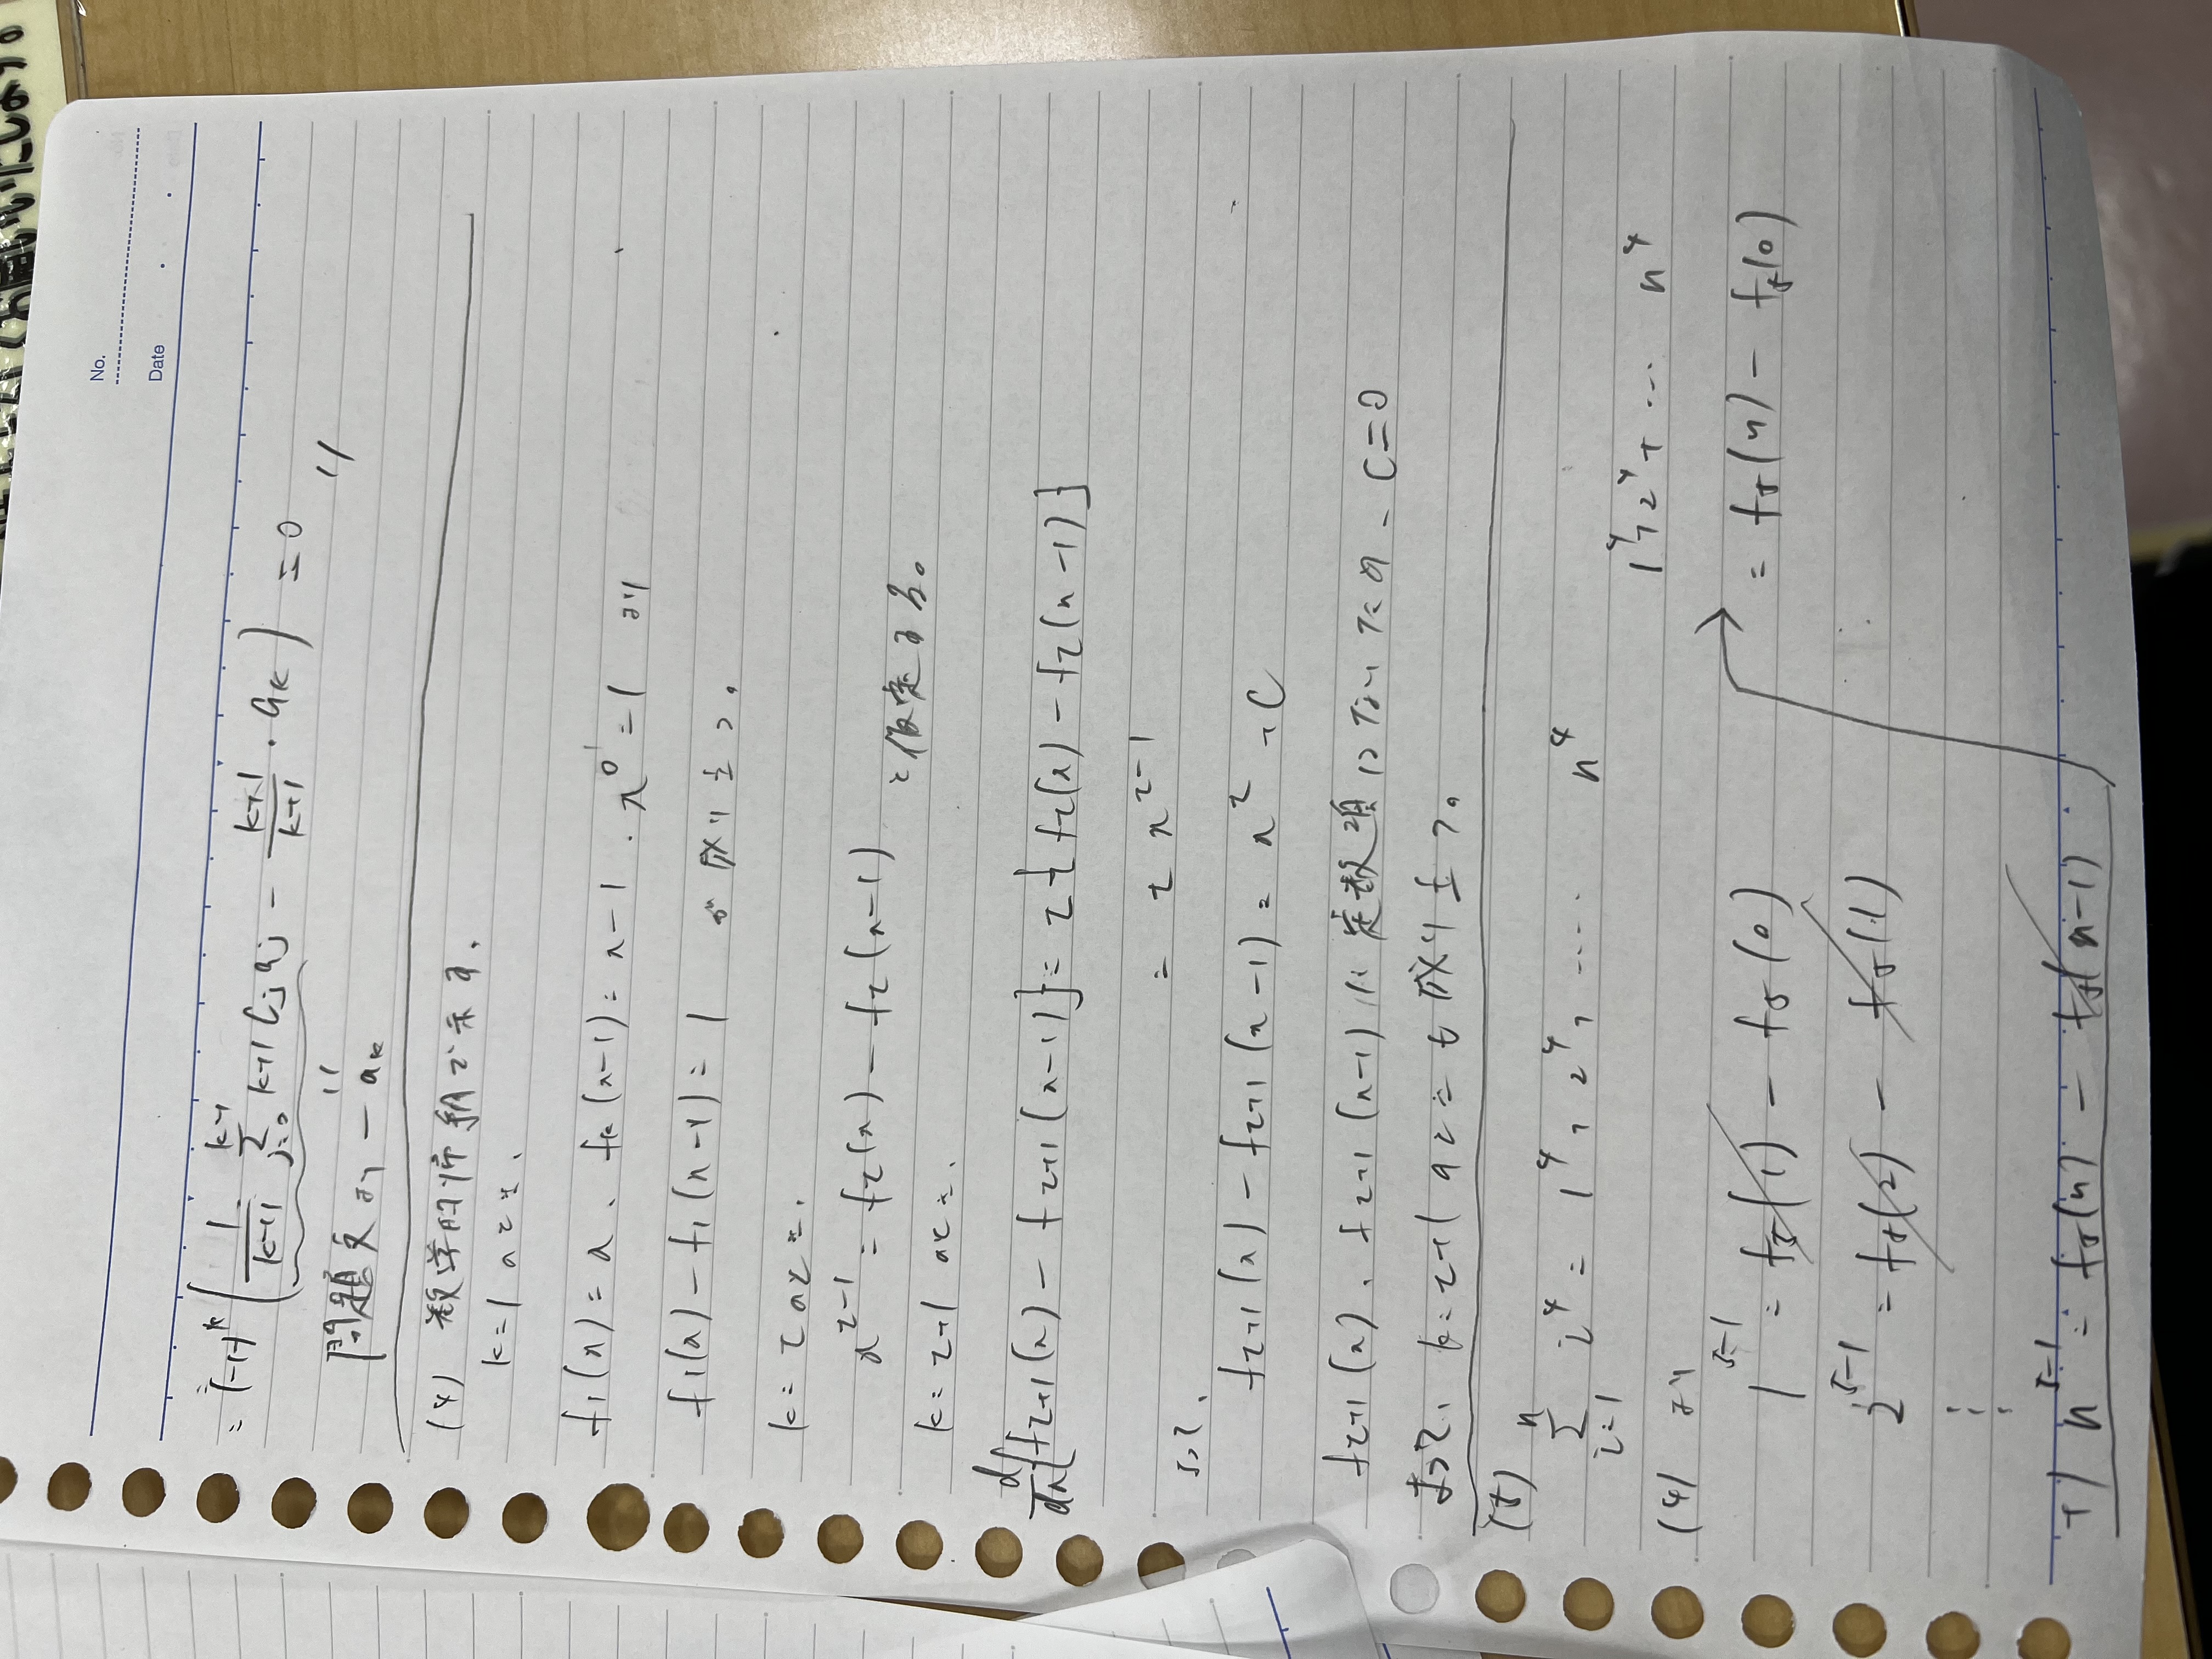 No.
Date
= (-1)^k ( 1/(k+1) Σ_{j=0}^{k-1} k+1Cj aj - (k+1)/(k+1) · ak ) = 0 //
問題文より - ak
(4) 数学的帰納で示す.
k=1のとき.
f1(x) = x 、 fk(x-1) = x-1 . x^0 = 1 より
f1(x) - f1(x-1) = 1 が成り立つ.
k=lのとき.
x^{l-1} = fl(x) - fl(x-1) と仮定する。
k=l+1 のとき.
d/dx { fl+1(x) - fl+1(x-1) } = l { fl(x) - fl(x-1) }
= l x^{l-1}
よって、
fl+1(x) - fl+1(x-1) = x^l + C
fl+1(x) 、 fl+1(x-1) は定数項はないため C=0
よって、 k=l+1 のときも成り立つ。
(5) Σ_{i=1}^{n} i^4 = 1^4 + 2^4 + .... n^4
(4) より
1^4+2^4+ ... n^4
1^{5-1} = f5(1) - f5(0)
= f5(n) - f5(0)
2^{5-1} = f5(2) - f5(1)
⋮
+) n^{5-1} = f5(n) - f5(n-1)